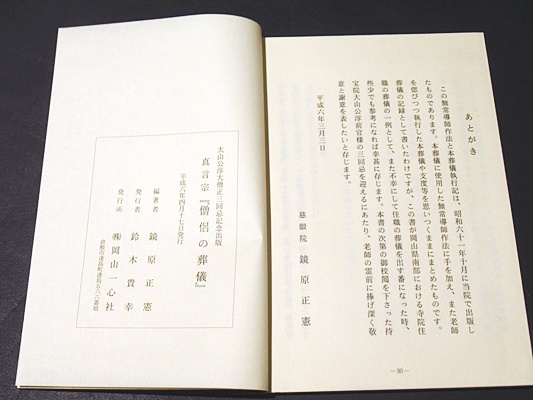 あとがき
この無常導師作法と本葬儀執行記は、昭和六十一年十月に当院で出版し
たものであります。本葬儀に使用した無常導師作法に手を加え、また老師
を偲びつつ執行した本葬儀や支度等を思いつくままにまとめたものです。
葬儀の記録として書いたわけですが、この書が岡山県南部における寺院住
職の葬儀の一例として、また不幸にして住職の葬儀を出す番になった時、
些少でも参考になれば幸甚に存じます。本書の次第の御校閲を下さった持
宝院大山公淳前官様の三回忌を迎えるにあたり、老師の霊前に捧げ深く敬
意と謝意を表したいと存じます。
平成六年三月三日
慈眼院 鏡原正憲
—90—
大山公淳大僧正三回忌記念出版
真言宗『僧侶の葬儀』
平成六年四月十七日発行
編著者 鏡原正憲
発行者 鈴木貴幸
発行所 ㈱岡山一心社